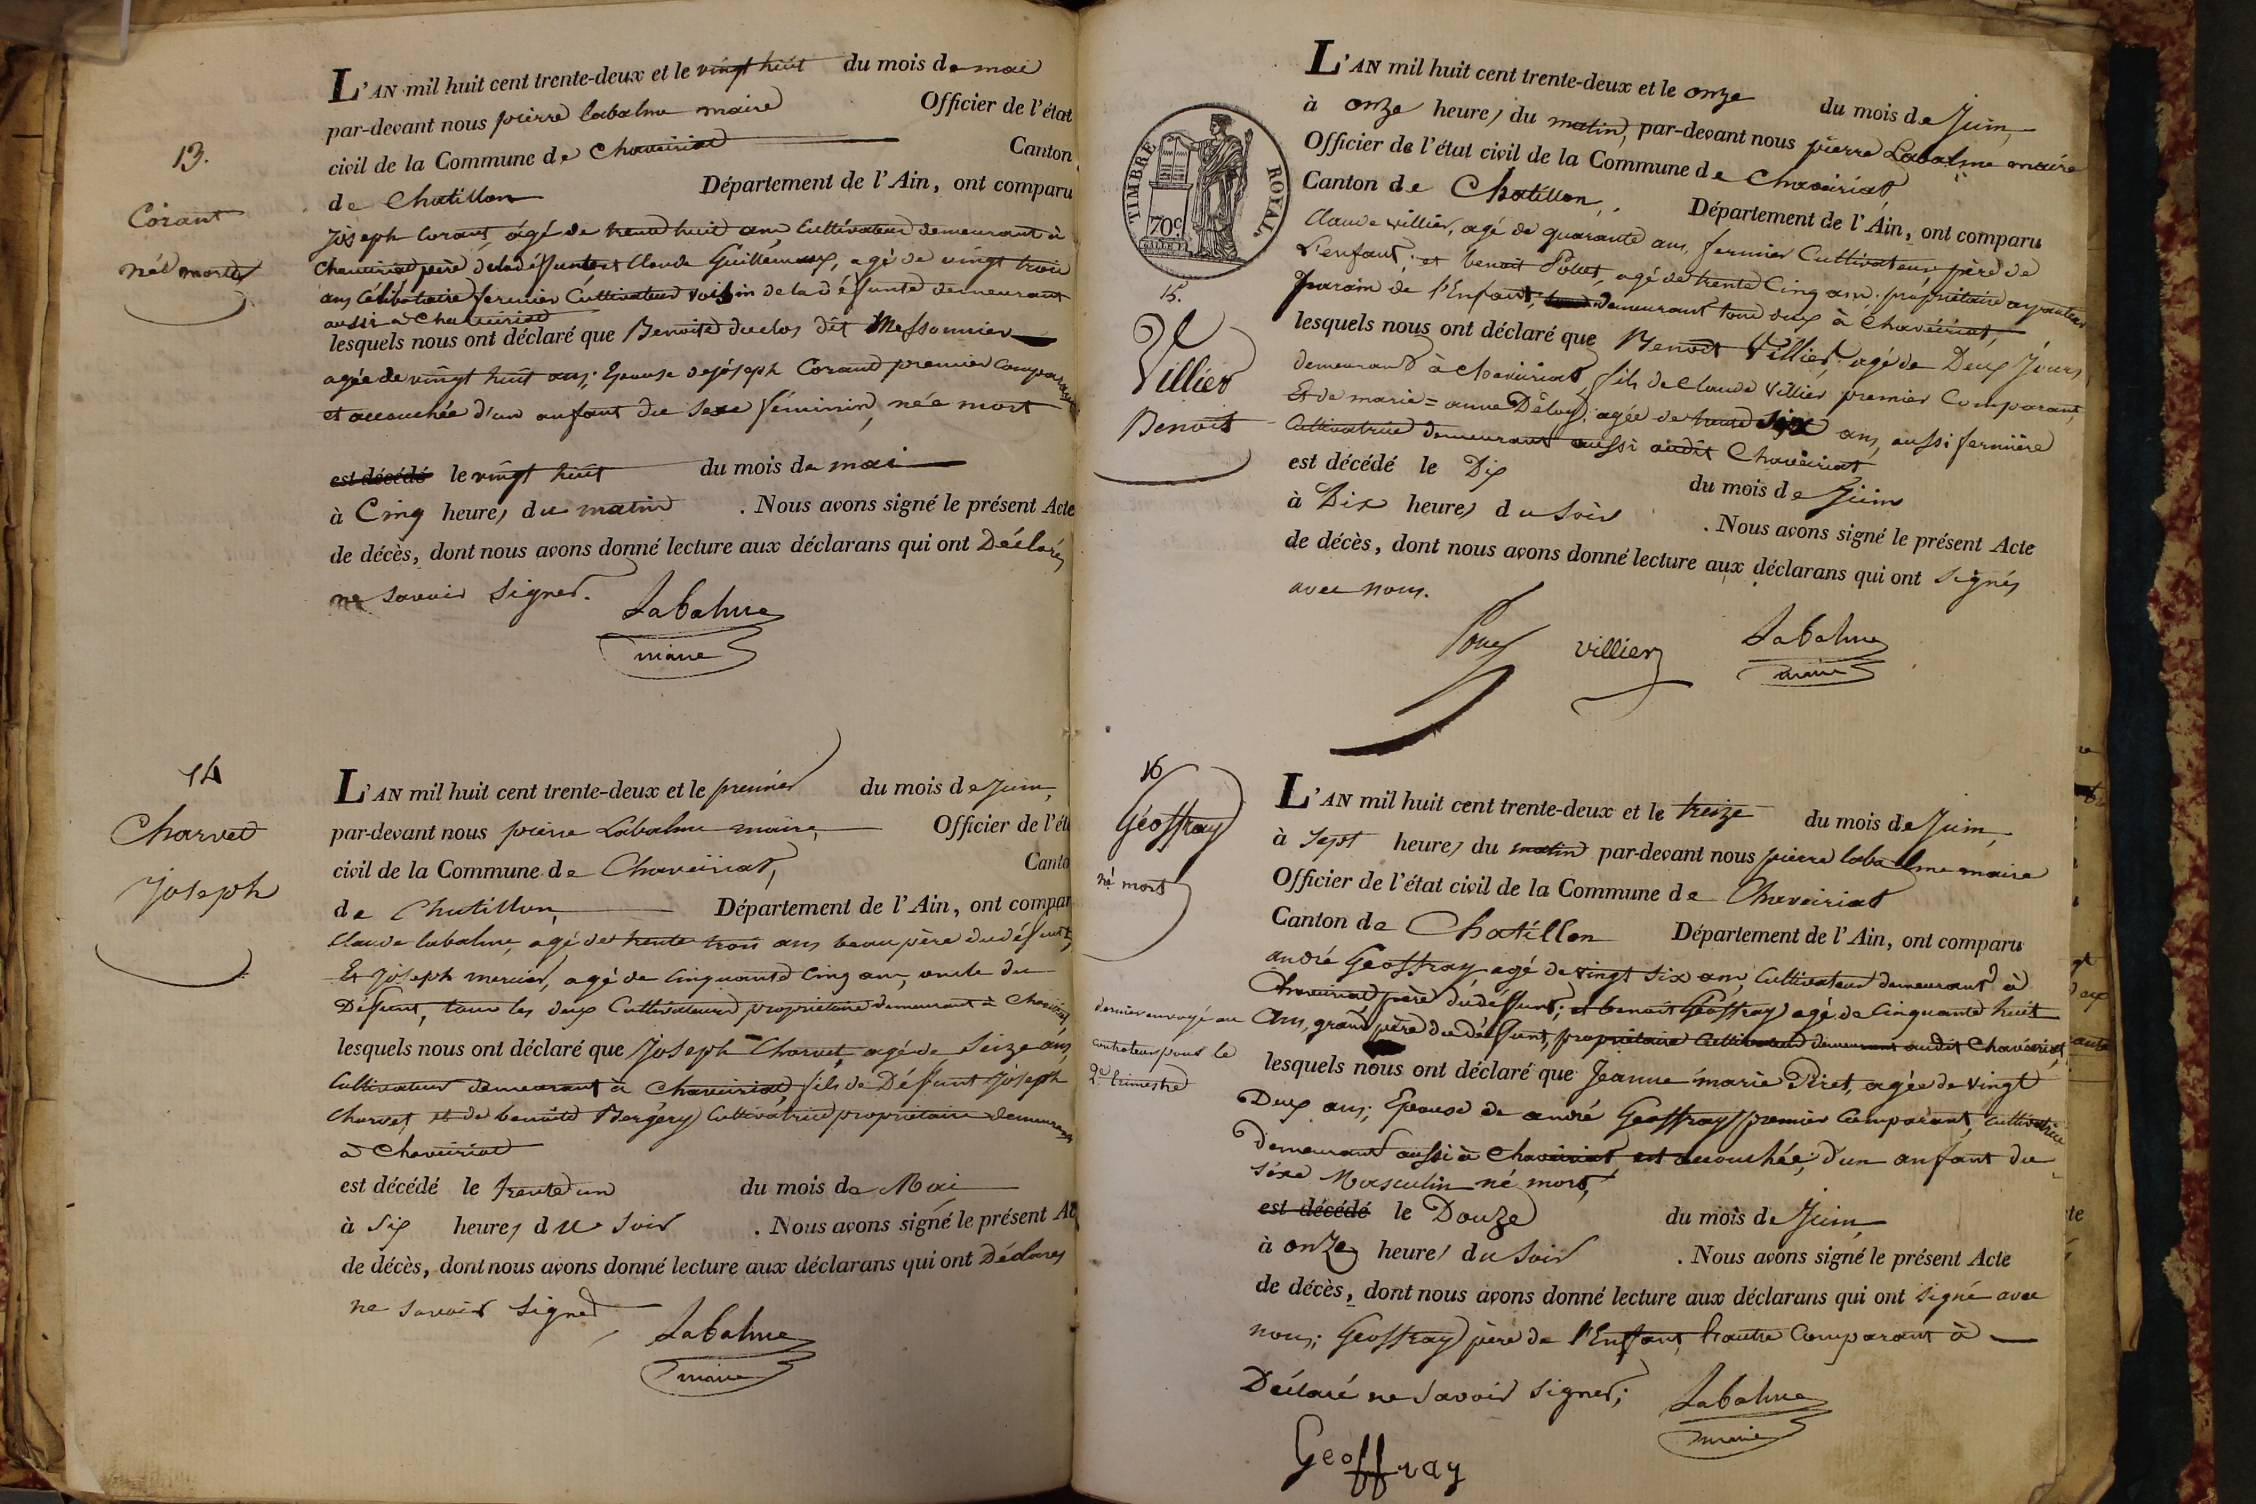 13.
Corant
née morte
L'AN mil huit cent trente-deux et le vingt huit du mois de mai
par-devant nous pierre labalme maire Officier de l'état
civil de la Commune de Chaveiriat Canton
de Chatillon Département de l'Ain, ont comparu
joseph Corant, agé de trente huit ans Cultivateur demeurant à
Chaveiriat père de la défunte et Claude Guillemaux, agé de vingt trois
ans Célibataire fermier Cultivateur voisin de la défunte demeurant
aussi à Chaveiriat
lesquels nous ont déclaré que Benoite duclos dit Messonnier
agée de vingt huit ans; Epouse de joseph Corant premier Comparant
et accouchée d'un enfant du sexe féminin, née mort
est décédé le vingt huit du mois de mai
à Cinq heures du matin . Nous avons signé le présent Acte
de décès, dont nous avons donné lecture aux déclarans qui ont Déclarés
ne savoir signer.
Labalme
maire
14
Charvet
Joseph
L'AN mil huit cent trente-deux et le premier du mois de Juin,
par-devant nous pierre Labalme maire, Officier de l'ét
civil de la Commune de Chaveiriat, Canto
de Chatillon, Département de l'Ain, ont compar
Claude labalme, agé de trente trois ans beau père du défunt,
Et Joseph mercier, agé de Cinquante Cinq ans, oncle du
Défunt, tous les deux Cultivateurs propriétaire demeurant à Chaveiriat,
lesquels nous ont déclaré que Joseph Charvet, agé de Seize ans,
Cultivateur demeurant à Chaveiriat, fils de Défunt Joseph
Charvet, et de benoite Bergery Cultivatrice propriétaire demeurant
à Chaveiriat
est décédé le trente un du mois de Mai
à Six heures du soir . Nous avons signé le présent Ac
de décès, dont nous avons donné lecture aux déclarans qui ont Déclarés
ne savoir signer
Labalme
maire
TIMBRE ROYAL.
70c.
15.
Villier
Benoit
L'AN mil huit cent trente-deux et le onze du mois de Juin,
à onze heures du matin, par-devant nous pierre Labalme maire
Officier de l'état civil de la Commune de Chaveiriat,
Canton de Chatillon, Département de l'Ain, ont comparu
Claude villier, agé de quarante ans, fermier Cultivateur père de
L'enfant; et benoit Pollet, agé de trente Cinq ans, propriétaire
parain de l'Enfant, demeurant tous deux à Chaveiriat,
lesquels nous ont déclaré que Benoit Villier, agé de Deux Jours,
demeurant à chaveiriat, fils de Claude Villier premier Comparant,
Et de marie=anne agée de trente six ans, aussi fermière
Cultivatrice demeurant aussi audit Chaveiriat
est décédé le Dix du mois de Juin
à Dix heures du soir . Nous avons signé le présent Acte
de décès, dont nous avons donné lecture aux déclarans qui ont signés
avec nous.
villier
Labalme
maire
16
Géoffray
né mort
dernier envoyé au
controleur pour le
2e. trimestre
L'AN mil huit cent trente-deux et le treize du mois de Juin,
à sept heures du matin par-devant nous pierre labalme maire
Officier de l'état civil de la Commune de Chaveiriat
Canton de Chatillon Département de l'Ain, ont comparu
andré Geoffray agé de vingt six ans, Cultivateur demeurant à
Chaveiriat père du défunt; et benoit Geoffray agé de Cinquante huit
Ans, grand père du défunt, propriétaire Cultivateur demeurant audit Chaveiriat,
lesquels nous ont déclaré que Jeanne marie Piret, agée de vingt
Deux ans; Epouse de andré Geoffray premier Comparant, cultivatrice
demeurant aussi à Chaveiriat, est accouchée; d'un anfant du
séxe Masculin né mort,
est décédé le Douze du mois de Juin,
à onze heures du soir . Nous avons signé le présent Acte
de décès, dont nous avons donné lecture aux déclarans qui ont signé avec
nous; Geoffray père de l'Enfant, l'autre Comparant à
Déclaré ne savoir signer;
Labalme
maire
Geoffray